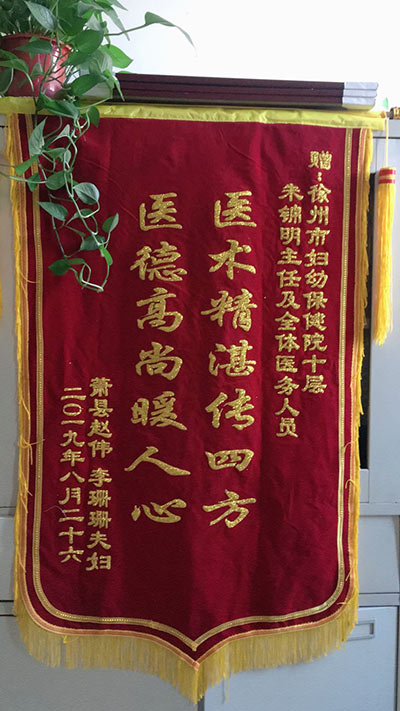 赠：徐州市妇幼保健院十层
朱锦明主任及全体医务人员
医术精湛传四方
医德高尚暖人心
萧县赵伟 李珊珊夫妇
二〇一九年八月二十六